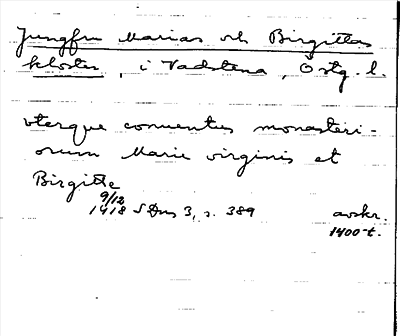 Jungfru Marias och Birgittas
kloster, i Vadstena, Östg. l.
vterque conuentus monasteri-
orum Marie virginis et
Birgitte
9/12
1418 SDns 3, s. 389 avskr.
1400-t.